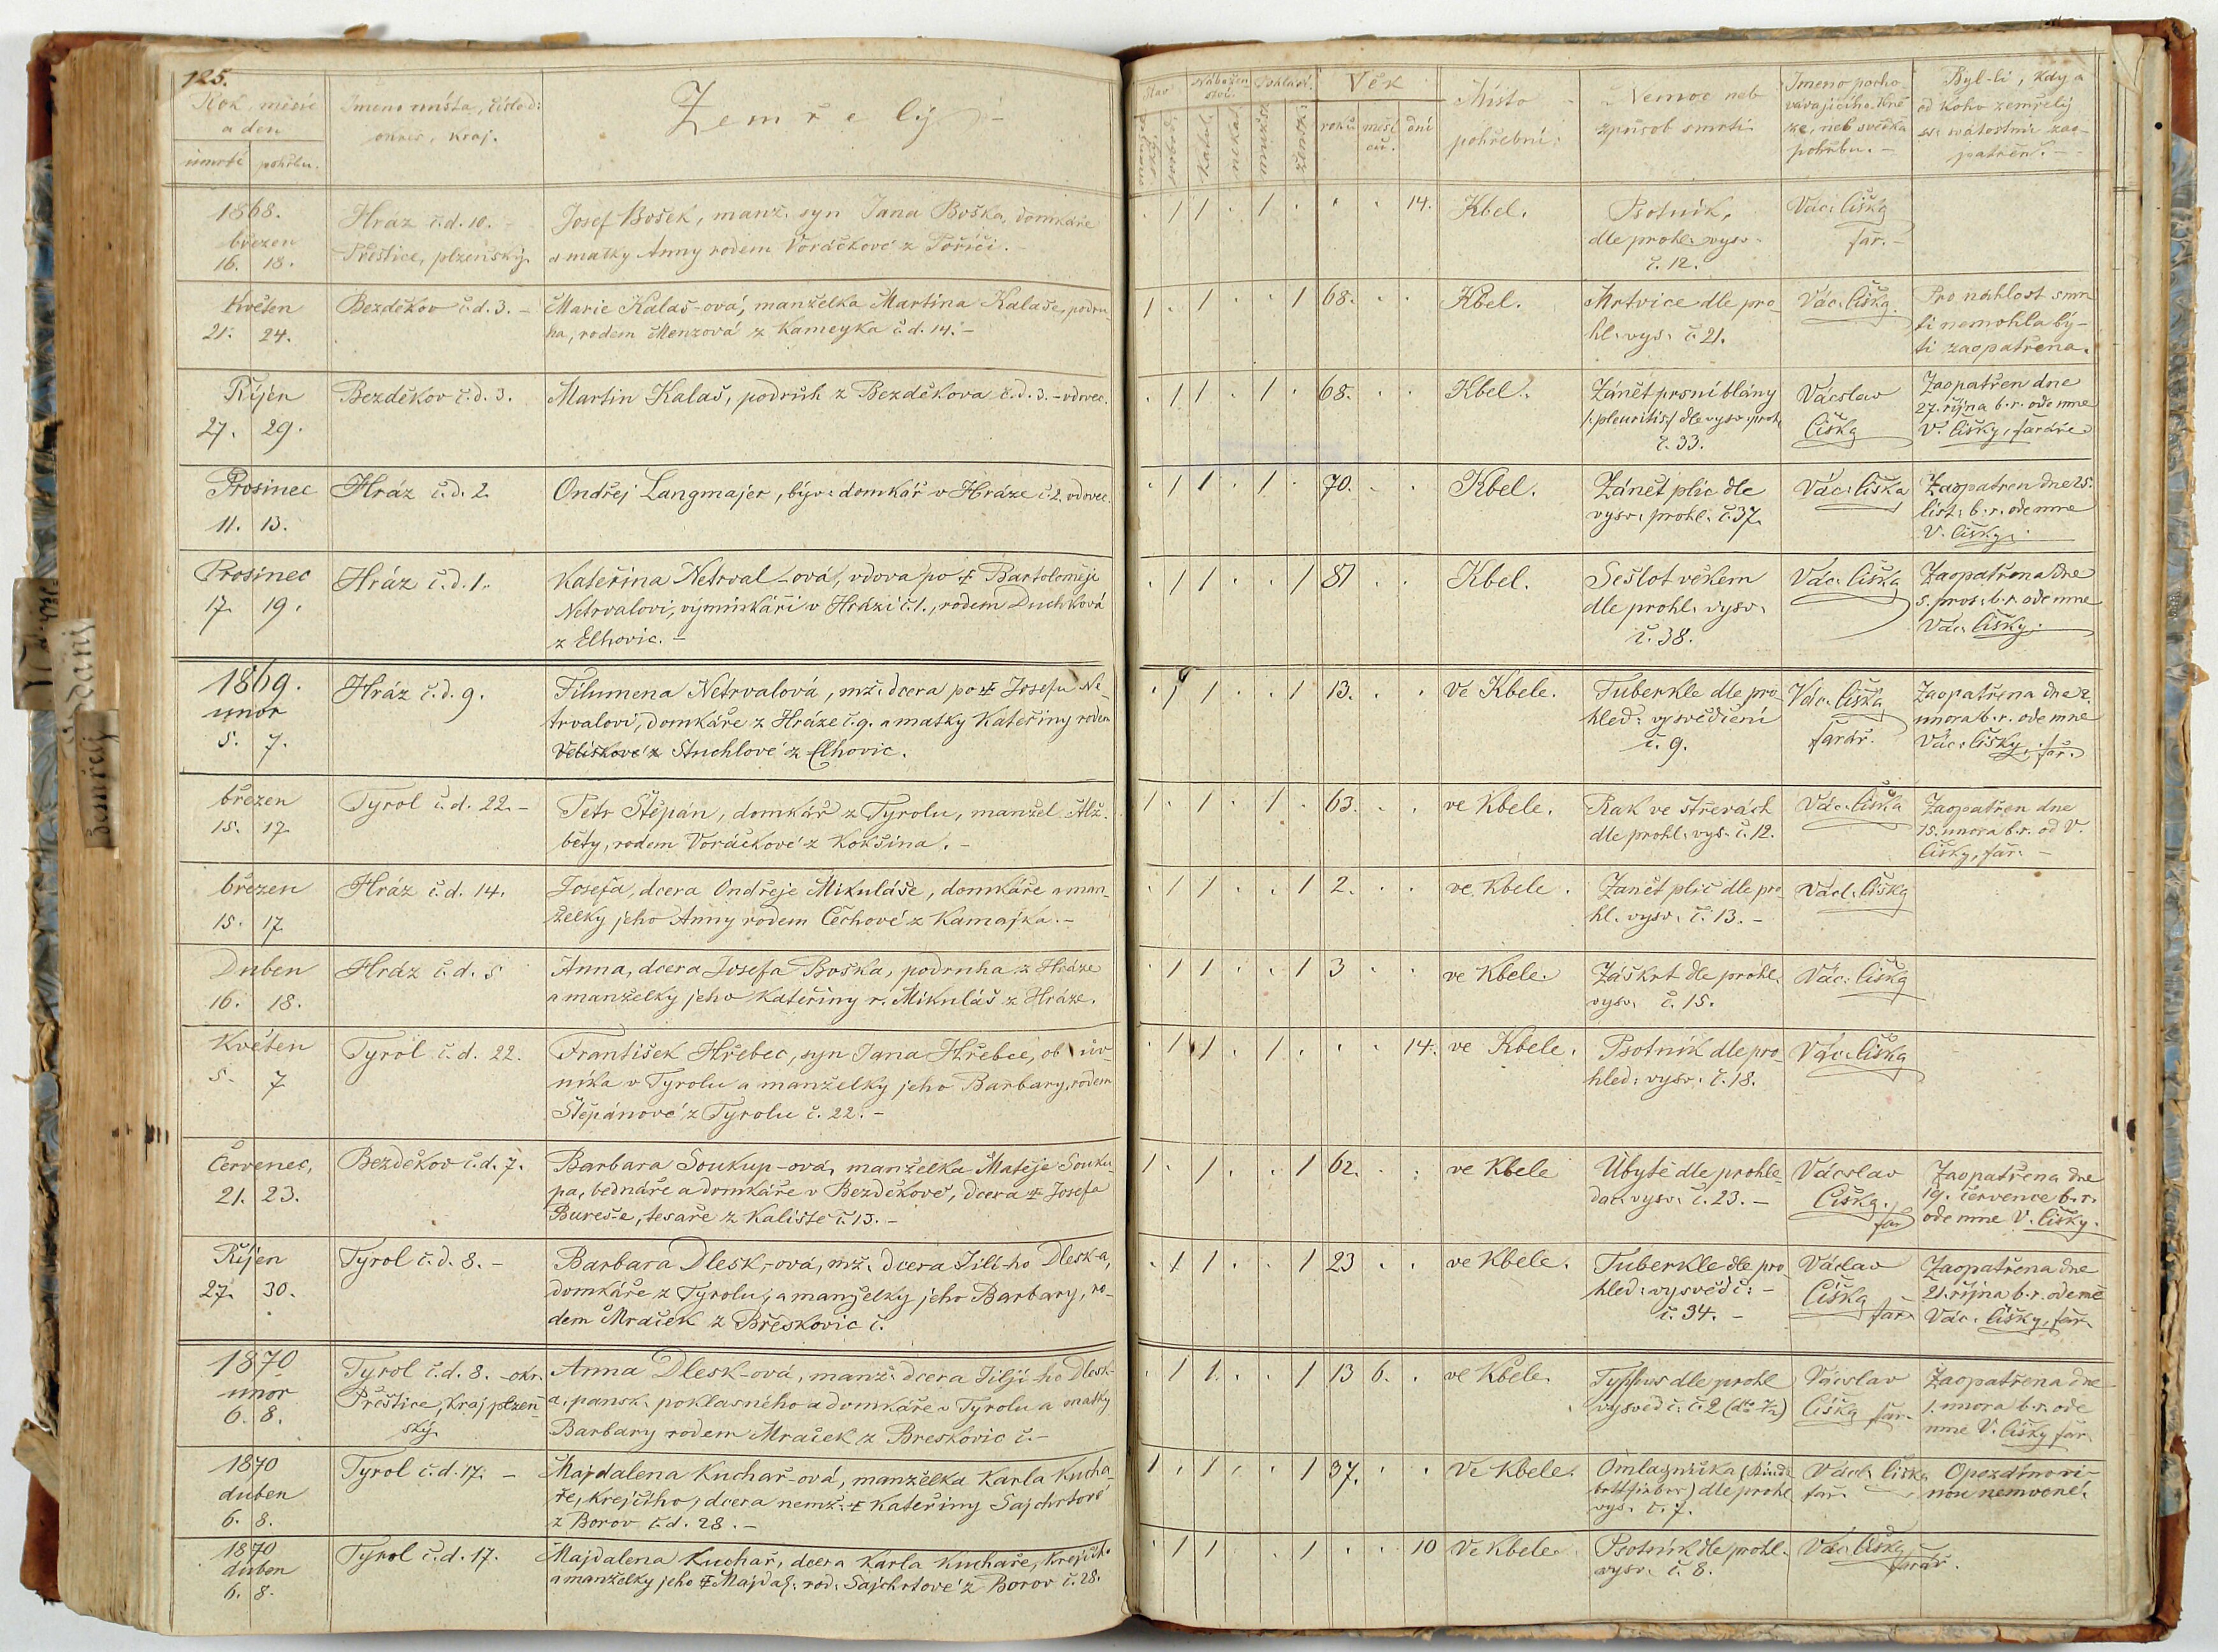 125.
Rok, měsíc a den
úmrtí pohřbu.
Jmeno místa, číslo d: okres, kraj.
Zemřelý
Stav
Nábožen ství.
Pohlaví.
Věk
roků měsí ců. dní
Místo pohřební.
Nemoc neb způsob smrti
Jmeno pocho vávajícího kně ze, neb svědka pohřbu. —
Byl-li, kdy a od koho zemřelý sv. svátostmi zao- patřen. —
1868.
březen
16. 18.
Hráz č.d. 10. —
Přeštice, plzeňský.
Josef Bošek, manž. syn Jana Boška, domkáře
a matky Anny rodem Voráčkové z Poříčí. —
. 1 1 . 1 . . . 14. Kbel.
Psotník,
dle prohl. vysv.
č. 12.
Vác. Čiška
far. —
Květen
21. 24.
Bezděkov č.d. 3. —
Marie Kalaš-ová, manželka Martina Kalaše, podru
ha, rodem Menzová z Kameyka č.d. 14. —
1 . 1 . . 1 68. . . Kbel.
Mrtvice dle pro
hl. vys. č. 21.
Vác. Čiška.
Pro náhlost smr
ti nemohla bý-
ti zaopatřena.
Říjen
27. 29.
Bezděkov č.d. 3.
Martin Kalaš, podruh z Bezděkova č.d. 3. — vdovec.
. 1 1 . 1 . 68. . . Kbel.
Zánět prsní blány
/: pleuritis :/ dle vysv. proh.
č. 33.
Vácslav
Čiška
Zaopatřen dne
27. října b.r. ode mne
V. Čišky, faráře
Prosinec
11. 13.
Hráz č.d. 2.
Ondřej Langmajer, býv. domkář v Hráze č. 2. vdovec.
. 1 1 . 1 . 70. . . Kbel.
Zánět plic dle
vysv. prohl. č. 37.
Vác. Čiška
Zaopatřen dne 25.
list. b.r. ode mne
V. Čišky.
Prosinec
17. 19.
Hráz č.d. 1.
Kateřina Netrval-ová, vdova po † Bartoloměji
Netrvalovi, výminkáři v Hrázi č. 1., rodem Duchková
z Elhovic. —
. 1 1 . . 1 81 . . Kbel.
Sešlost věkem
dle prohl. vysv.
č. 38.
Vác. Čiška
Zaopatřena dne
5. pros. b.r. ode mne
Vác. Čišky.
1869.
únor
5. 7.
Hráz č.d. 9.
Filumena Netrvalová, mž. dcera po † Josefu Ne
trvalovi, domkáře z Hráze č. 9. a matky Kateřiny rodem
Veliškové z Stuchlové z Elhovic.
. 1 1 . . 1 13. . . ve Kbele.
Tuberkle dle pro
hled. vysvědčení
č. 9.
Vác. Čiška
farář.
Zaopatřena dne 2.
února b.r. ode mne
Vác. Čišky, far.
březen
15. 17.
Tyrol č.d. 22. —
Petr Štěpán, domkář z Tyrolu, manžel Alž.
běty, rodem Voráčkové z Kokšína. —
1 . 1 . 1 . 63. . . ve Kbele.
Rak ve střevách
dle prohl. vys. č. 12.
Vác. Čiška
Zaopatřen dne
15. února b.r. od V.
Čišky, far. —
březen
15. 17.
Hráz č.d. 14.
Josefa, dcera Ondřeje Mikuláše, domkáře a man
želky jeho Anny rodem Čechové z Kamajka. —
. 1 1 . . 1 2. . . ve Kbele.
Zanět plic dle pro
hl. vysv. č. 13. —
Václ. Čiška
Duben
16. 18.
Hráz č.d. 5
Anna, dcera Josefa Boška, podruha z Hráze
a manželky jeho Kateřiny r. Mikuláš z Hráze.
. 1 1 . . 1 3 . . ve Kbele.
Záškrt dle prohl.
vysv. č. 15.
Vác. Čiška
Květen
5. 7.
Tyrol č.d. 22.
František Hřebec, syn Jana Hřebce, ob ův-
níka v Tyrolu a manželky jeho Barbary, rodem
Štěpánové z Tyrolu č. 22. —
. 1 1 . 1 . . . 14. ve Kbele.
Psotník dle pro
hled. vysv. č. 18.
Vác. Čiška
Červenec,
21. 23.
Bezděkov č.d. 7.
Barbara Soukup-ová, manželka Matěje Souku
pa, bednáře a domkáře v Bezděkově, dcera † Josefa
Bureše, tesaře z Kaliště č. 13. —
1 . 1 . . 1 62. . . ve Kbele
Úbytě dle prohle
dac. vysv. č. 23. —
Vácslav
Čiška.
far
Zaopatřena dne
19. července b.r.
ode mne V. Čišky.
Říjen
27. 30.
Tyrol č.d. 8. —
Barbara Dlesk-ová, mž. dcera Jilí-ho Dlesk-a,
domkáře z Tyrolu, a manželky jeho Barbary, ro-
dem Mraček z Břeskovic č.
. 1 1 . . 1 23 . . ve Kbele.
Tuberkle dle pro
hled. vysvědč. —
č. 34. —
Václav
Čiška
far.
Zaopatřena dne
21. října b.r. ode mě
Vác. Čišky, far.
1870
únor
6. 8.
Tyrol č.d. 8. — okr.
Přeštice, kraj plzeň
ský.
Anna Dlesk-ová, manž. dcera Jiljí-ho Dlesk-
a, pansk. poklasného a domkáře v Tyrolu a matky
Barbary rodem Mraček z Breskovic č. —
. 1 1 . . 1 13 6. . ve Kbele.
Typhus dle prohl
vysvědč. č. 2
Vácslav
Čiška far.
Zaopatřena dne
1. února b.r. ode
mne V. Čišky far.
1870
duben
6. 8.
Tyrol č.d. 17. —
Majdalena Kuchař-ová, manželka Karla Kucha
ře, krejčího, dcera nemž. † Kateřiny Sajchrtové
z Borov č.d. 28. —
1 . 1 . . 1 37. . . Ve Kbele.
Omladnička dle prohl
vys. č. 7.
Václ. Čiška
far.
1870
duben
6. 8.
Tyrol č.d. 17.
Majdalena Kuchař, dcera Karla Kuchaře, krejčího
a manželky jeho † Majdal. rod. Sajchrtové z Borov č. 28.
. 1 1 . 1 . . 10 Ve Kbele.
Psotník dle prohl.
vysv. č. 8.
Vác. Čiška
farář.
Zemřelý